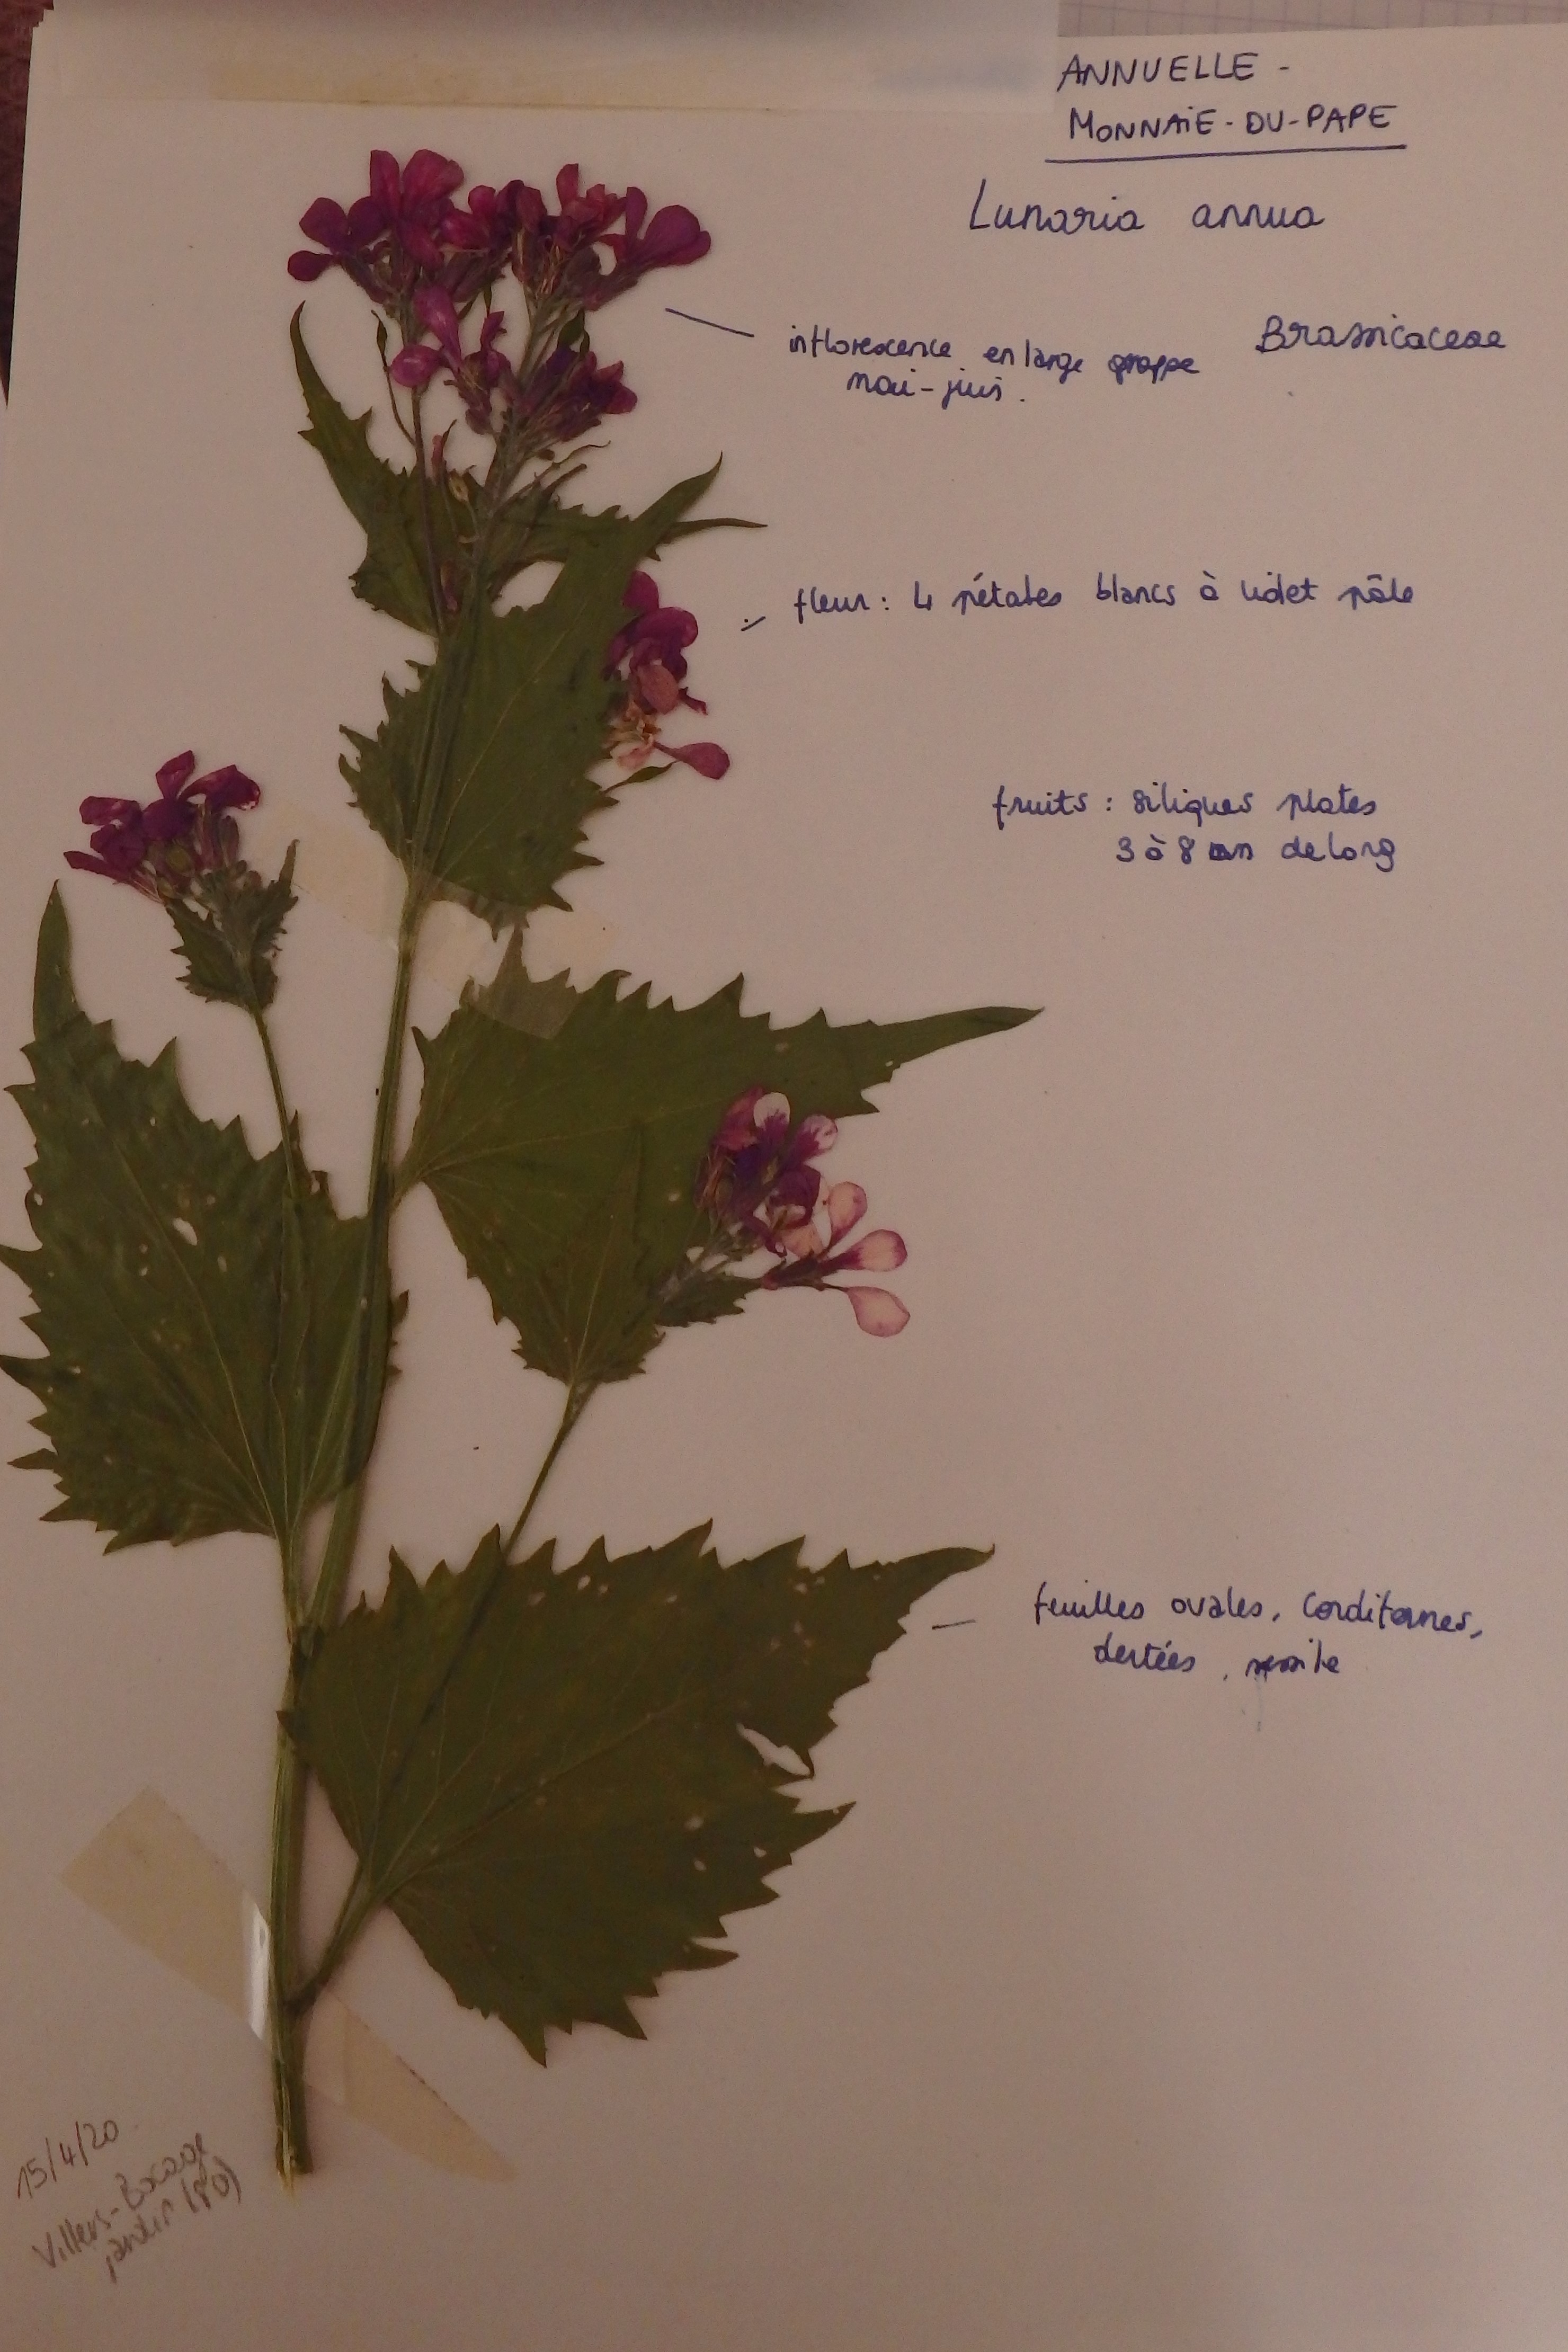 ANNUELLE -
MONNAIE-DU-PAPE
Lunaria annua
Brassicaceae
inflorescence en large grappe
mai-juin.
fleur : 4 pétales blancs à violet pâle
fruits : siliques plates
3 à 8 cm de long
feuilles ovales, cordiformes,
dentées, sessile
15/4/20
Villers-Bocage
jardin (80)